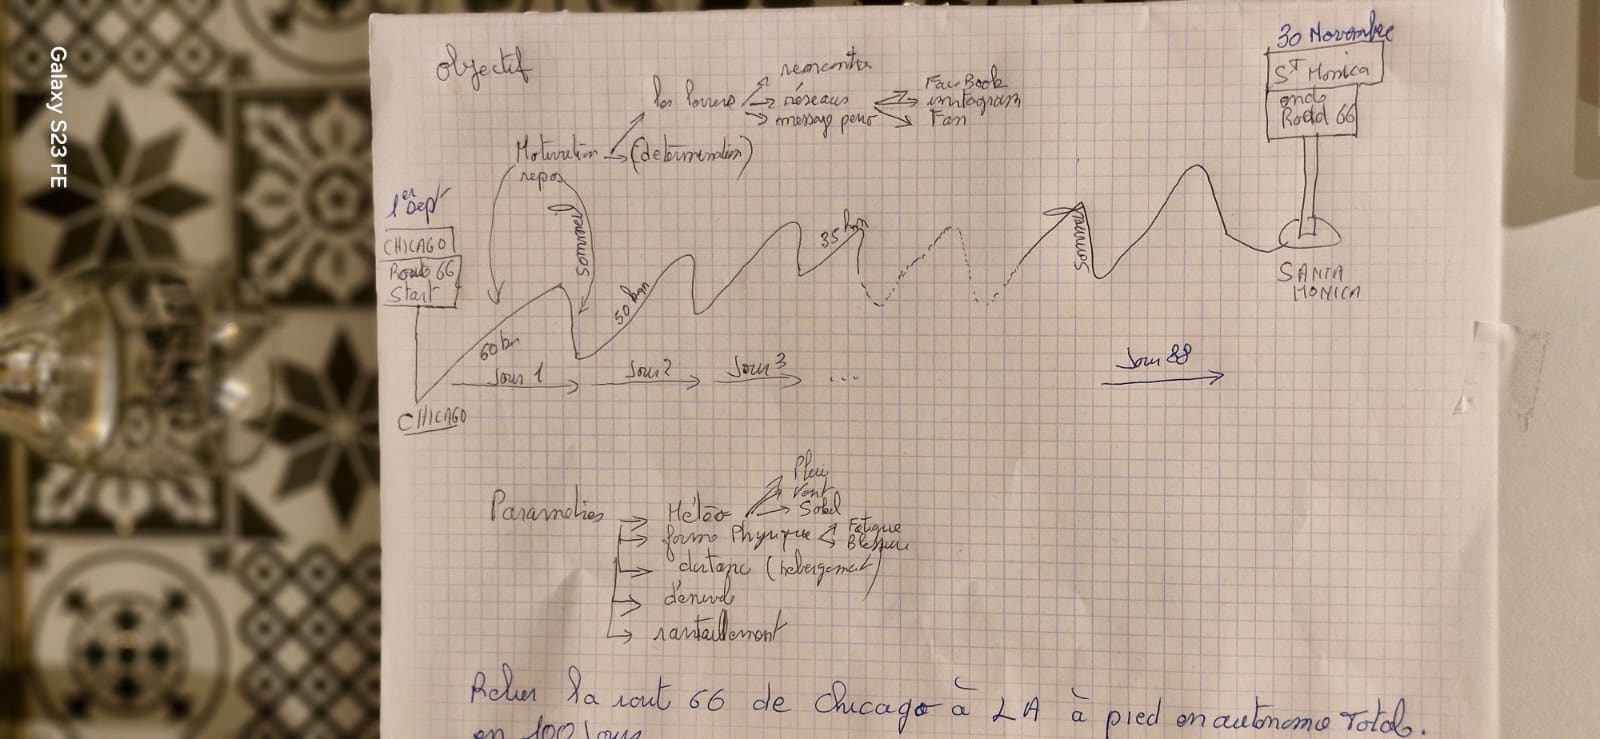 30 Novembre
Objectif
St Monica
end
Road 66
rencontre
réseaus
FaceBook
inntagram
Fan
message perso
Motivation
(determination)
repos
1er Sept
CHICAGO
Route 66
Start
Sommeil
35 km
Sommeil
SANTA
MONICA
50 km
60 km
Jour 1
Jour 2
Jour 3
...
Jour 88
CHICAGO
Parametres
Météo
Pluie
Vent
Soleil
forme Physique
Fatigue
Blessure
distance (hébergement)
dénivelé
ravitaillement
Relier la rout 66 de Chicago à LA à pied en autonomie Totale.
en 100 Jours
Galaxy S23 FE